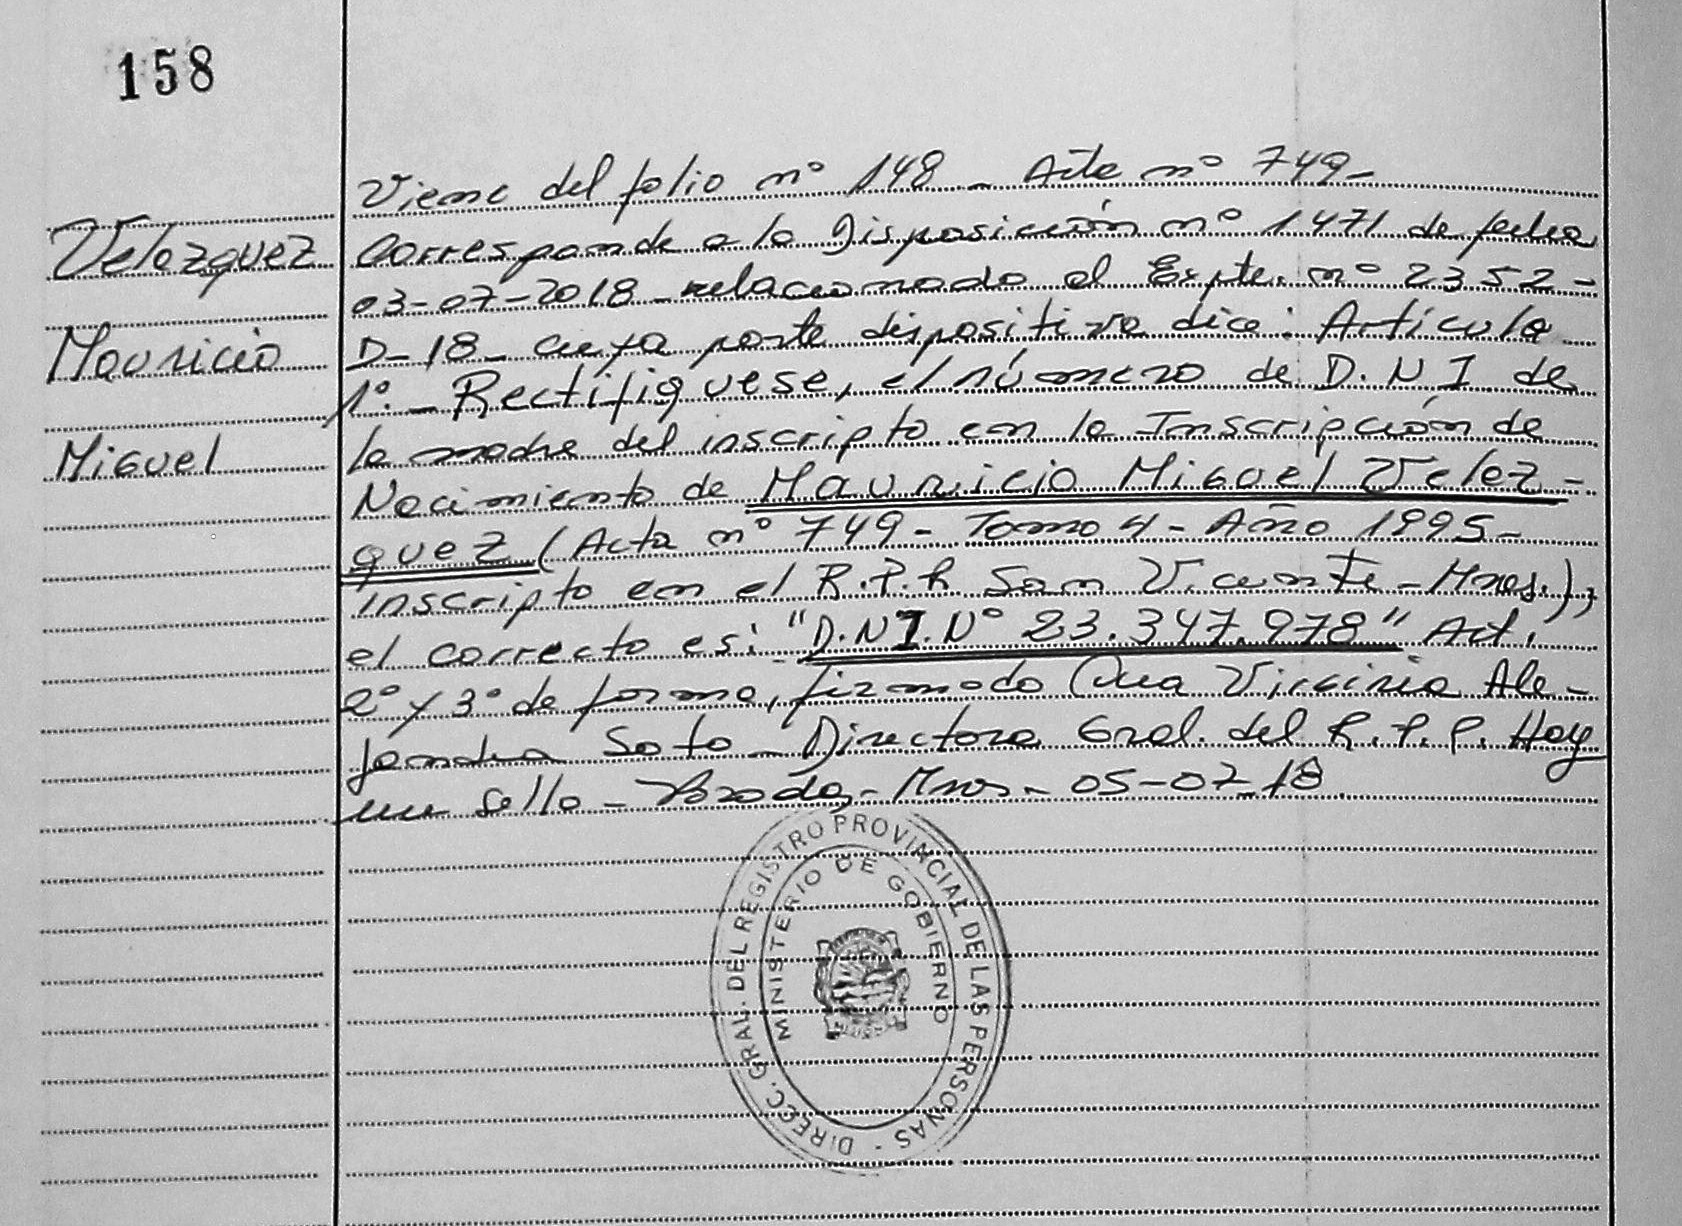 158
Velazquez
Mauricio
Miguel
Viene del folio nº 148 - Acta nº 749 -
Corresponde a la Disposición nº 1471 de fecha
03-07-2018 - relacionado el Expte. nº 2352 -
D-18 - cuya parte dispositiva dice: Artículo
1º. - Rectifiquese, el número de D.N.I de
la madre del inscripto en la Inscripción de
Nacimiento de Mauricio Miguel Velaz-
quez (Acta nº 749 - Tomo 4 - Año 1995 -
inscripto en el R.P.P. San Vicente - Mnes.),
el correcto es: "D.N.I. Nº 23.347.978" Art.
2º y 3º de forma, firmado Virginia Ale-
jandra Soto - Directora Gral. del R.P.P. Hay
un sello - Mnes - 05-07-18
DIRECC. GRAL. DEL REGISTRO PROVINCIAL DE LAS PERSONAS -
MINISTERIO DE GOBIERNO